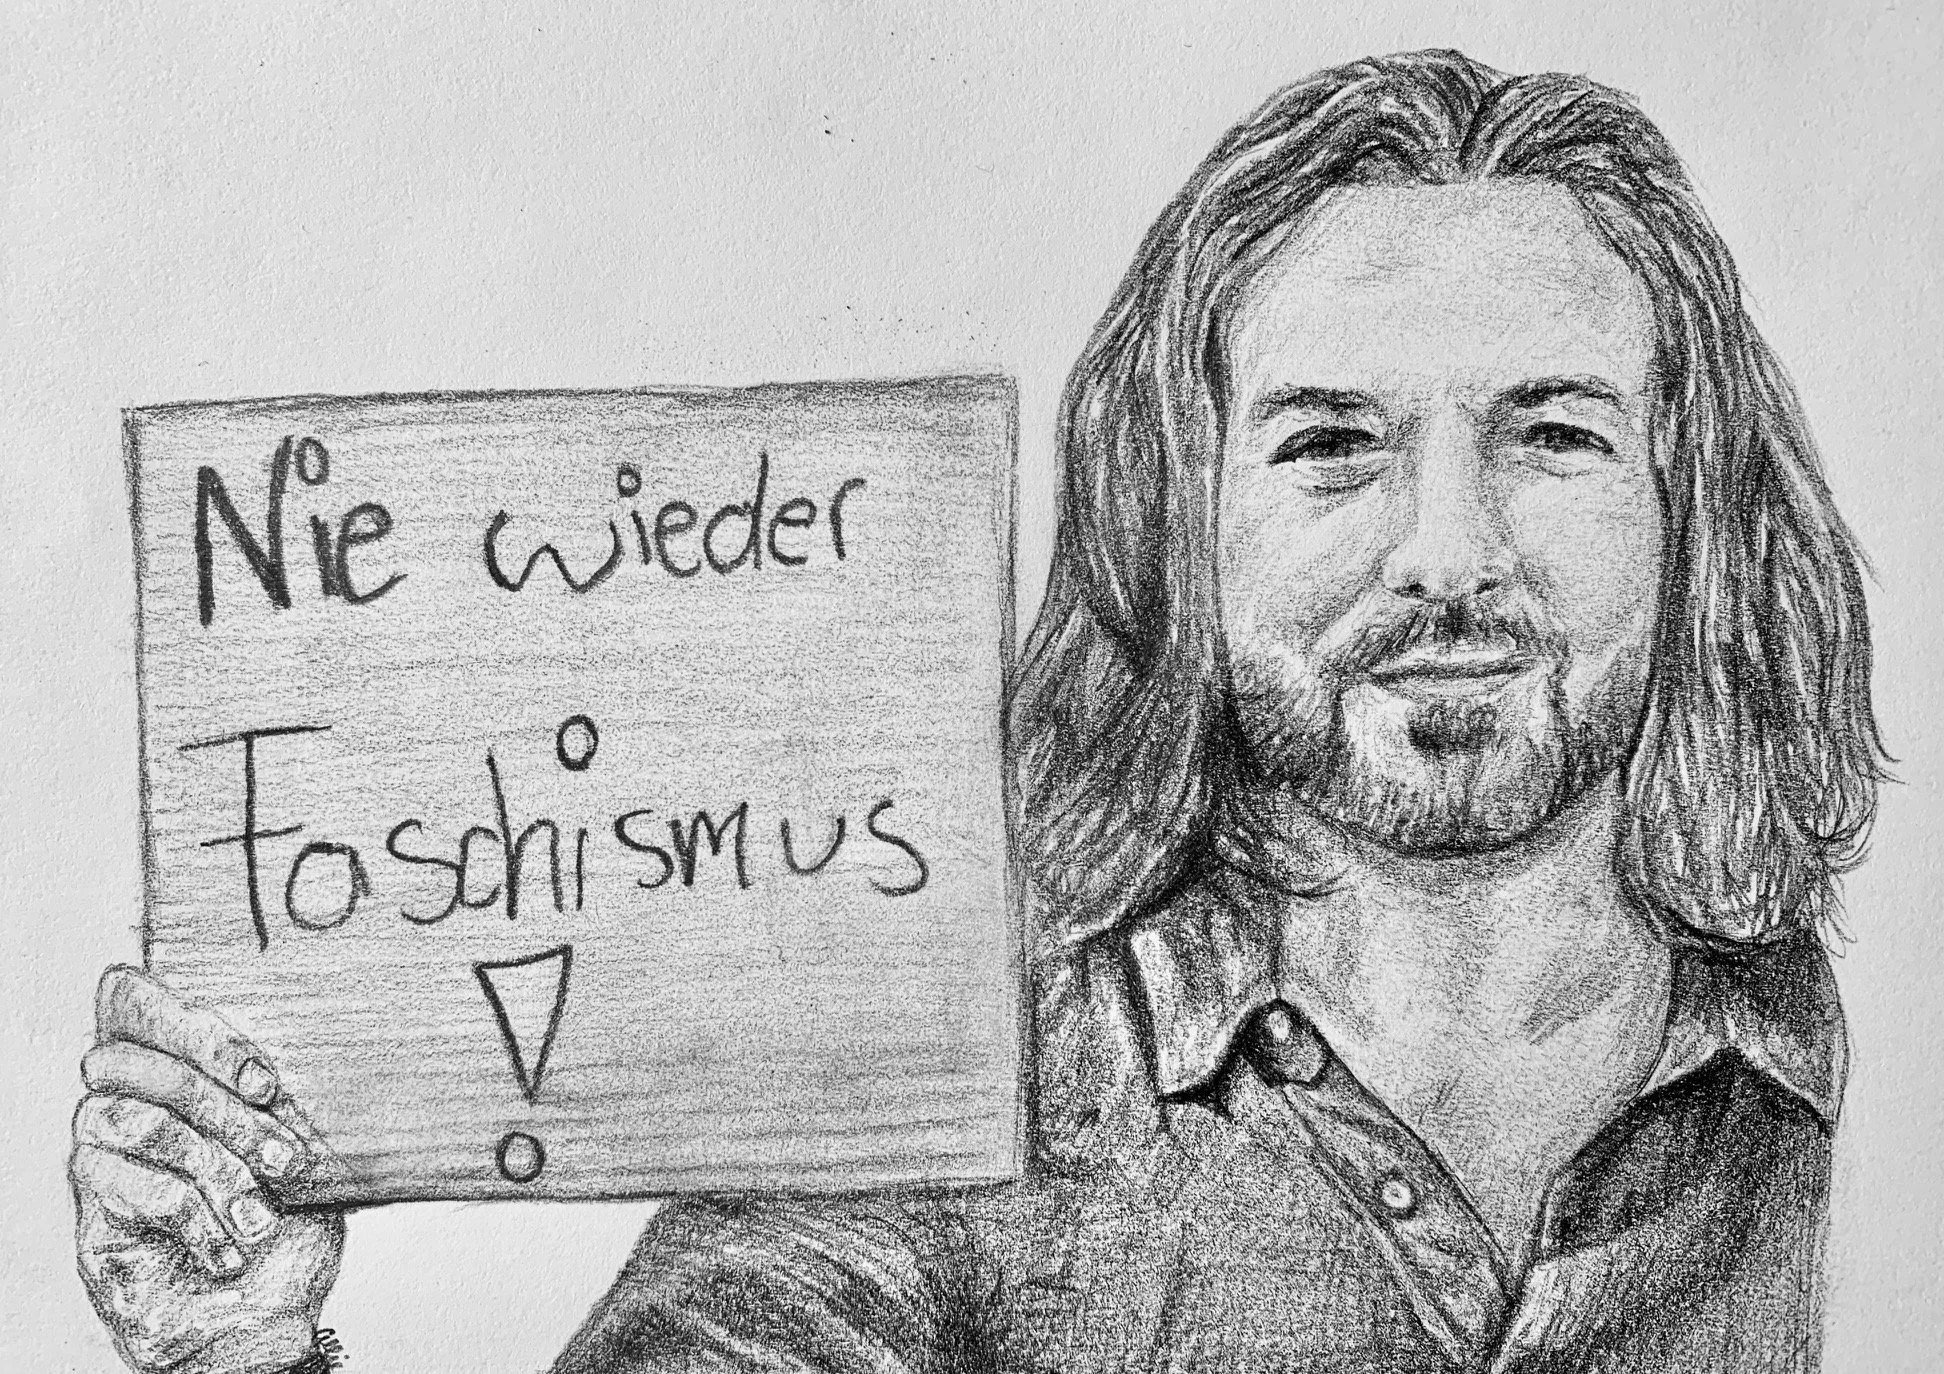 Nie wieder
Faschismus
!